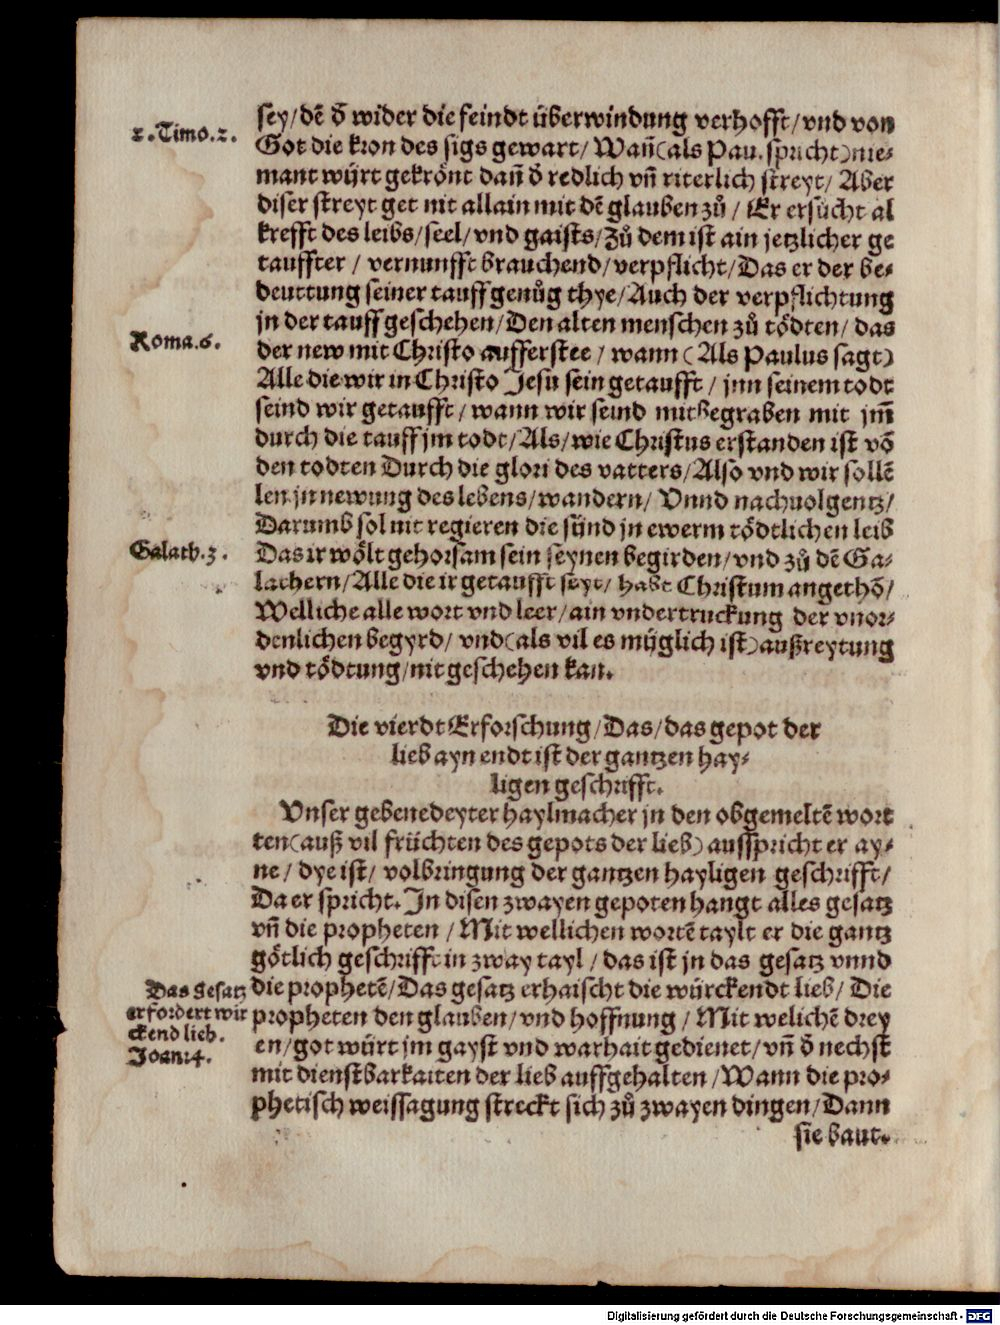 sey/dē ď wider die feindt überwindung verhofft/vnd von
2.Timo.2.
Got die kron des sigs gewart/Wañ(als Pau.spricht)nie-
mant würt gekrönt dañ ď redlich vñ riterlich streyt/Aber
diser streyt get nit allain mit dē glauben zů/Er ersůcht al
krefft des leibs/seel/vnd gaists/Zů dem ist ain jetzlicher ge
tauffter/vernunfft brauchend/verpflicht/Das er der be-
deuttung seiner tauff genůg thye/Auch der verpflichtung
jn der tauff geschehen/Den alten menschen zů tödten/das
Roma.6.
der new mit Christo aufferstee/wann(Als Paulus sagt)
Alle die wir in Christo Jesu sein getaufft/jnn seinem todt
seind wir getaufft/wann wir seind mitbegraben mit jm̃
durch die tauff jm todt/Als/wie Christus erstanden ist vō
den todten Durch die glori des vatters/Also vnd wir sollē
len jn newung des lebens/wandern/Vnnd nachuolgentz/
Darumb sol nit regieren die sünd jn ewerm tödtlichen leib
Galath.3.
Das ir wölt gehorsam sein seynen begirden/vnd zů dē Ga-
lathern/Alle die ir getaufft seyt/habt Christum angethō/
Welliche alle wort vnd leer/ain vndertruckung der vnor-
denlichen begyrd/vnd(als vil es müglich ist)außreytung
vnd tödtung/nit geschehen kan.
Die vierdt Erforschung/Das/das gepot der
lieb ayn endt ist der gantzen hay-
ligen geschrifft.
Vnser gebenedeyter haylmacher jn den obgemeltē wort
ten(auß vil früchten des gepots der lieb)ausspricht er ay-
ne/dye ist/volbringung der gantzen hayligen geschrifft/
Da er spricht.In disen zwayen gepoten hangt alles gesatz
vñ die propheten/Mit wellichen wortē taylt er die gantz
götlich geschrifft in zway tayl/das ist jn das gesatz vnnd
Das gesatz
erfordert wir
ckend lieb.
Joan.4.
die prophetē/Das gesatz erhaischt die würckendt lieb/Die
propheten den glauben/vnd hoffnung/Mit welichē drey
en/got würt jm gayst vnd warhait gedienet/vñ ď nechst
mit dienstbarkaiten der lieb auffgehalten/Wann die pro-
phetisch weissagung streckt sich zů zwayen dingen/Dann
sie baut.
Digitalisierung gefördert durch die Deutsche Forschungsgemeinschaft - DFG